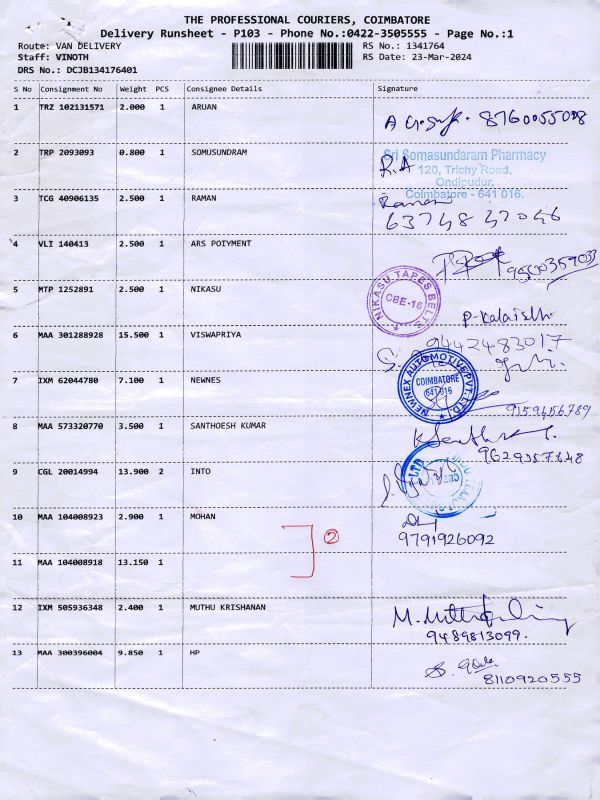 THE PROFESSIONAL COURIERS, COIMBATORE
Delivery Runsheet - P103 - Phone No.:0422-3505555 - Page No.:1
Route: VAN DELIVERY RS No.: 1341764
Staff: VINOTH RS Date: 23-Mar-2024
DRS No.: DCJB134176401
S No Consignment No Weight PCS Consignee Details Signature
1 TRZ 102131571 2.000 1 ARUAN
8760055008
2 TRP 2093093 0.800 1 SOMUSUNDRAM Sri Somasundaram Pharmacy
R.A 120, Trichy Road,
Ondipudur,
Coimbatore - 641 016.
3 TCG 40906135 2.500 1 RAMAN Raman
63748 47046
4 VLI 140413 2.500 1 ARS POIYMENT
9500359033
5 MTP 1252891 2.500 1 NIKASU NIKASU TAPES BELTS
CBE-16
6 MAA 301288928 15.500 1 VISWAPRIYA 9442483017
7 IXM 62044780 7.100 1 NEWNES NEWNEX AUTOMOTIVE PVT. LTD.
COIMBATORE
641 016
9159456789
8 MAA 573320770 3.500 1 SANTHOESH KUMAR
9629357848
9 CGL 20014994 13.900 2 INTO
10 MAA 104008923 2.900 1 MOHAN
9791926092
2
11 MAA 104008918 13.150 1
12 IXM 505936348 2.400 1 MUTHU KRISHANAN
9489813099.
13 MAA 300396004 9.850 1 HP
8110920555